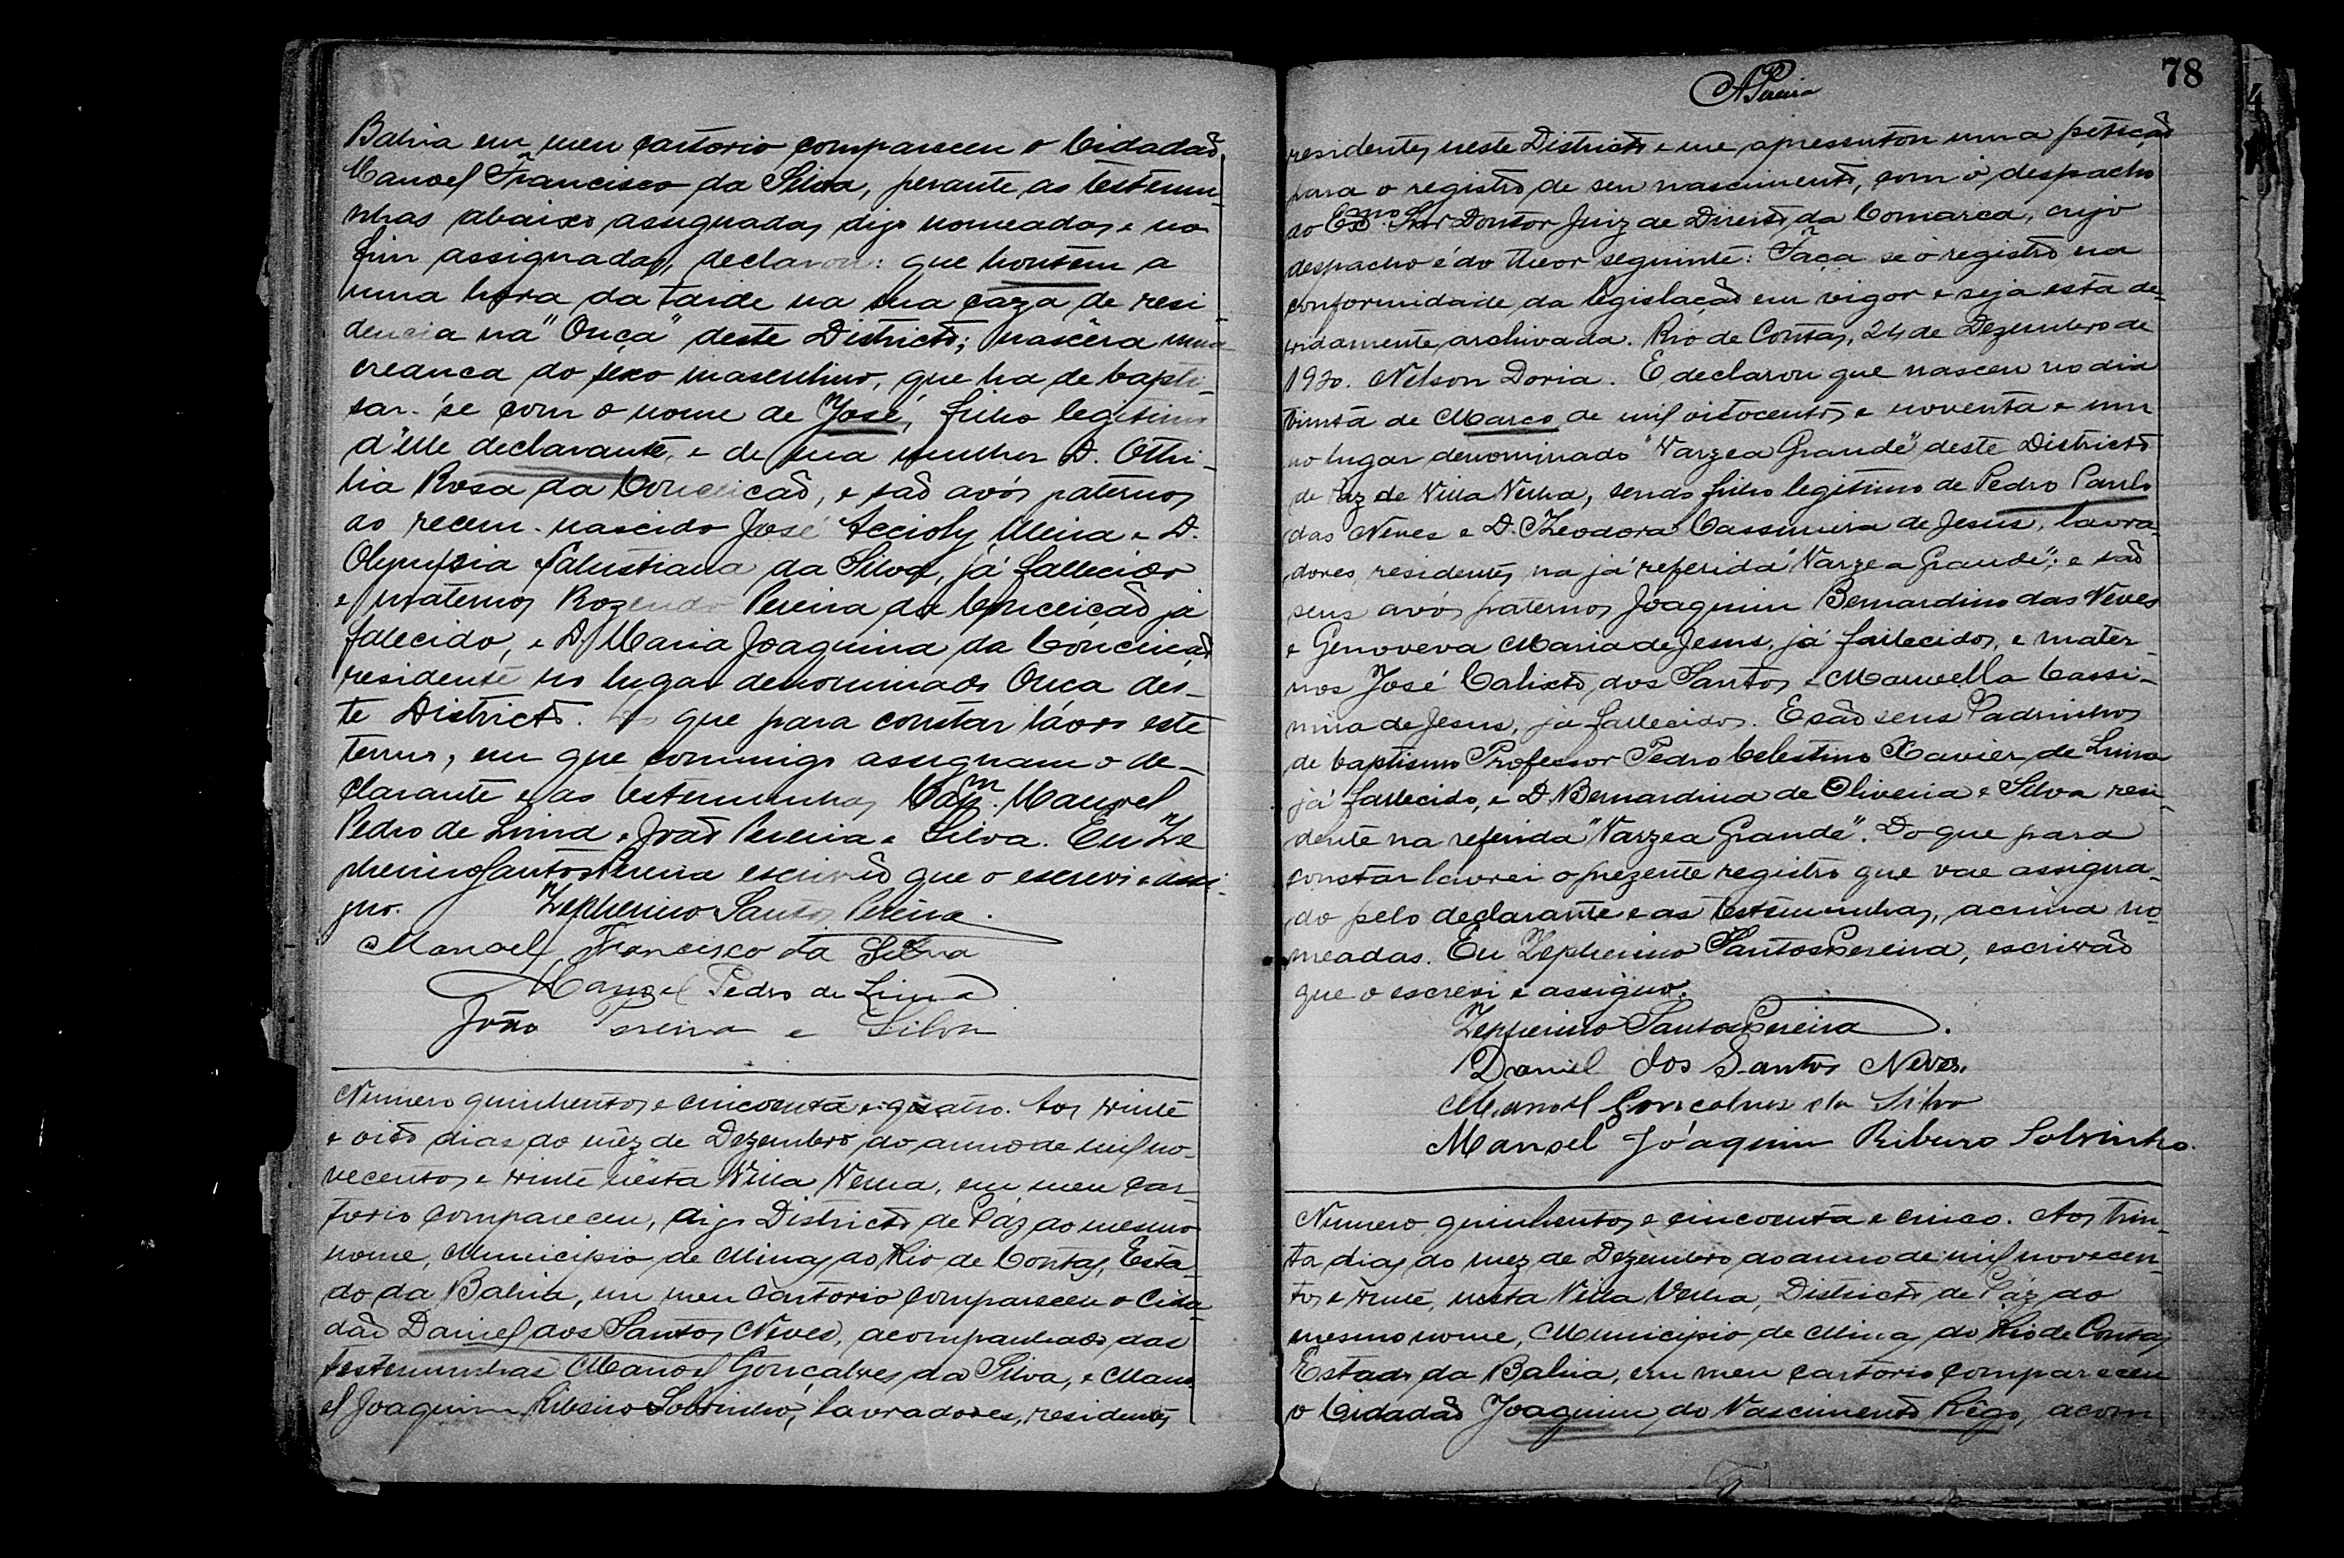 Bahia em meu cartorio compareceu o Cidadaõ
Manoel Francisco da Silva, perante as testemu-
nhas abaixo assignadas, digo nomeadas e no
fim assignadas, declarou: que hontem a
uma hora da tarde na sua caza de resi-
dencia na "Onça" deste Districto; nascêra uma
creanca do sexo masculino, que ha de bapti-
sar-se com o nome de José, filho legitimo
d'elle declarante, e de sua mulher D. Othi-
lia Rosa da Conceicaõ, e saõ avós paternos
do recem-nascido José Accioly Meira e D.
Olympia Salustiana da Silva, já fallecidos
e maternos Rozendo Pereira da Conceicaõ já
falecido, e D. Maria Joaquina da Conceicaõ
residente no lugar denominado Onça des-
te Districto. Do que para constar lávro este
termo, em que commigo assignam o de-
clarante e as testemunhas Capm. Manoel
Pedro de Lima e João Pereira e Silva. Eu Ze
pherino Santos Pereira escrivaõ que o escrevi e assi-
gno. Zepherino Santos Pereira.
Manoel Francisco da Silva
Manoel Pedro de Lima
João Pereira e Silva
Numero quinhentos e cincoenta e quatro. Aos vinte
e oito dias do mêz de Dezembro do anno de mil no-
vecentos e vinte nesta Villa Velha, em meu car-
torio compareceu, digo Districto de Páz do mesmo
nome, Municipio de Minas do Rio de Contas, Esta-
do da Bahia, em meu cartorio compareceu o Cida-
dão Daniel dos Santos Neves, acompanhado das
testemunhas Manoel Gonçalves da Silva, e Mano-
el Joaquim Ribeiro Sobrinho, lavradores, residentes
78
APereira
residentes neste Districto e me apresentou uma petição
para o registro de seu nascimento, com o despacho
do Exmo. Snr Doutor Juiz de Direito da Comarca, cujo
despacho é do theor seguinte: Faça se o registro na
conformidade da legislação em vigor e seja esta de-
vidamente archivada. Rio de Contas, 24 de Dezembro de
1920. Nelson Doria. E declarou que nasceu no dia
trinta de Marco de mil oitocentos e noventa e um
no lugar denominado "Varzea Grande" deste Districto
de Paz de Villa Velha, sendo filho legitimo de Pedro Paulo
das Neves e D. Theodora Cassimira de Jesus, lavra-
dores, residentes na já referida "Varzea Grande"; e saõ
seus avós paternos Joaquim Bernardino das Neves
e Genoveva Maria de Jesus, já fallecidos, e mater-
nos José Calixto dos Santos e Manoella Cassi-
mira de Jesus, já fallecidos. E são seus Padrinhos
de baptismo Professor Pedro Celestino Xavier de Lima
já fallecido, e D. Bernardina de Oliveira e Silva resi-
dente na referida "Varzea Grande". Do que para
constar lavrei o prezente registro que vae assigna-
do pelo declarante e as testemunhas, acima no-
meadas. Eu Zepherino Santos Pereira, escrivão
que o escrevi e assigno.
Zepherino Santos Pereira.
Daniel dos Santos Neves.
Manoel Goncalves da Silva
Manoel Joáquim Ribeiro Sobrinho.
Numero quinhentos e cincoenta e cinco. Aos trin-
ta dias do mez de Dezembro do anno de mil novecen-
tos e vinte, nesta Villa Velha, Districto de Páz do
mesmo nome, Municipio de Minas do Rio de Contas,
Estado da Bahia, em meu cartorio compareceu
o Cidadão Joaquim do Nascimento Rêgo, acom